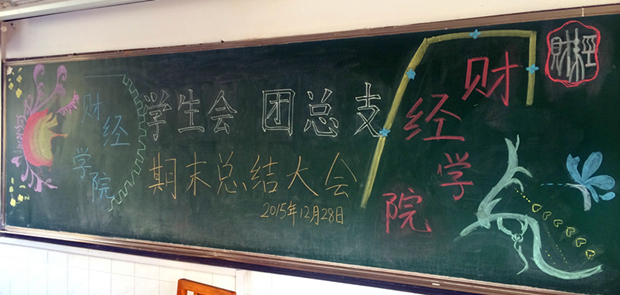 财经学院
学生会 团总支
期末总结大会
2015年12月28日
财经学院
财经